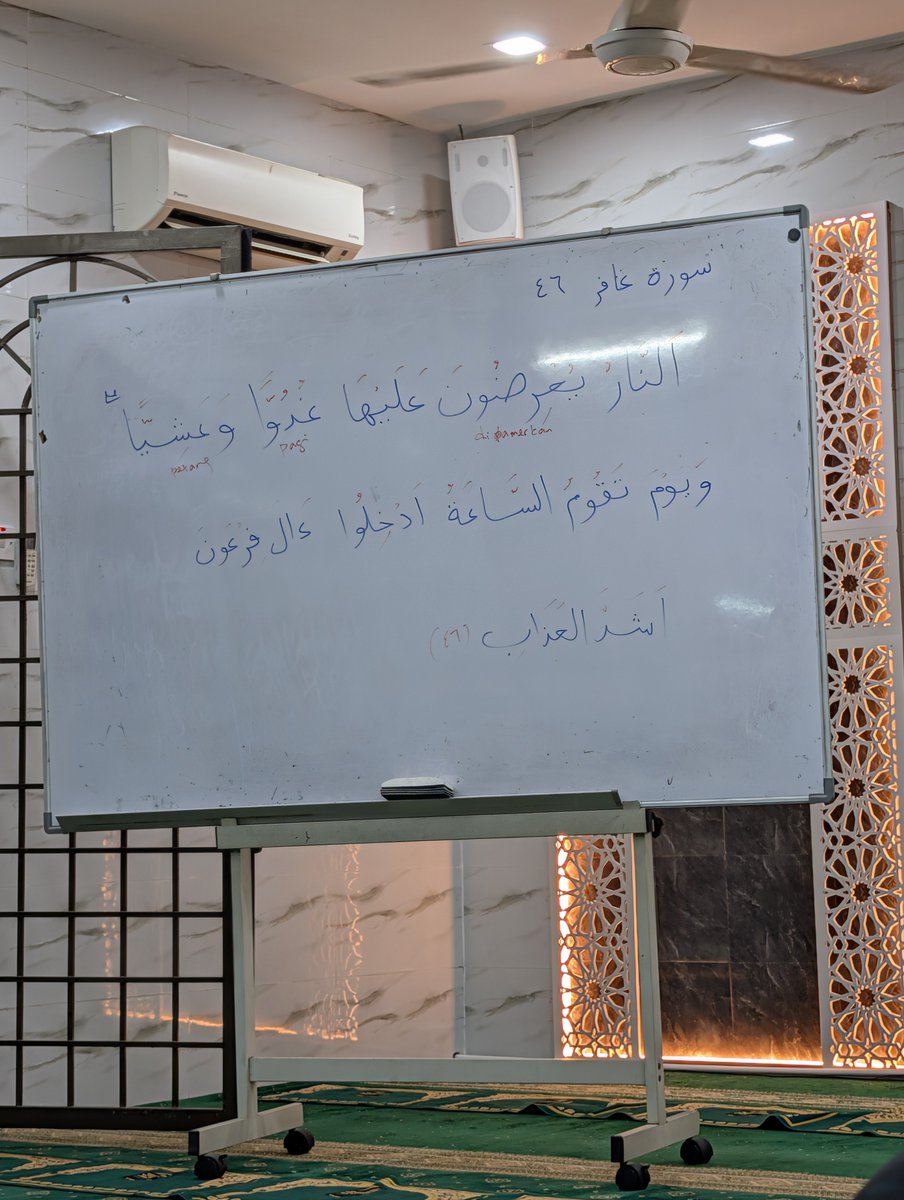 سورة غافر ٤٦
النَّارُ يُعْرَضُونَ عَلَيْهَا غُدُوًّا وَعَشِيًّا
dipamerkan pagi petang
وَيَوْمَ تَقُومُ السَّاعَةُ اَدْخِلُوا ءَالَ فِرْعَوْنَ
اَشَدَّ الْعَذَابِ (٤٦)